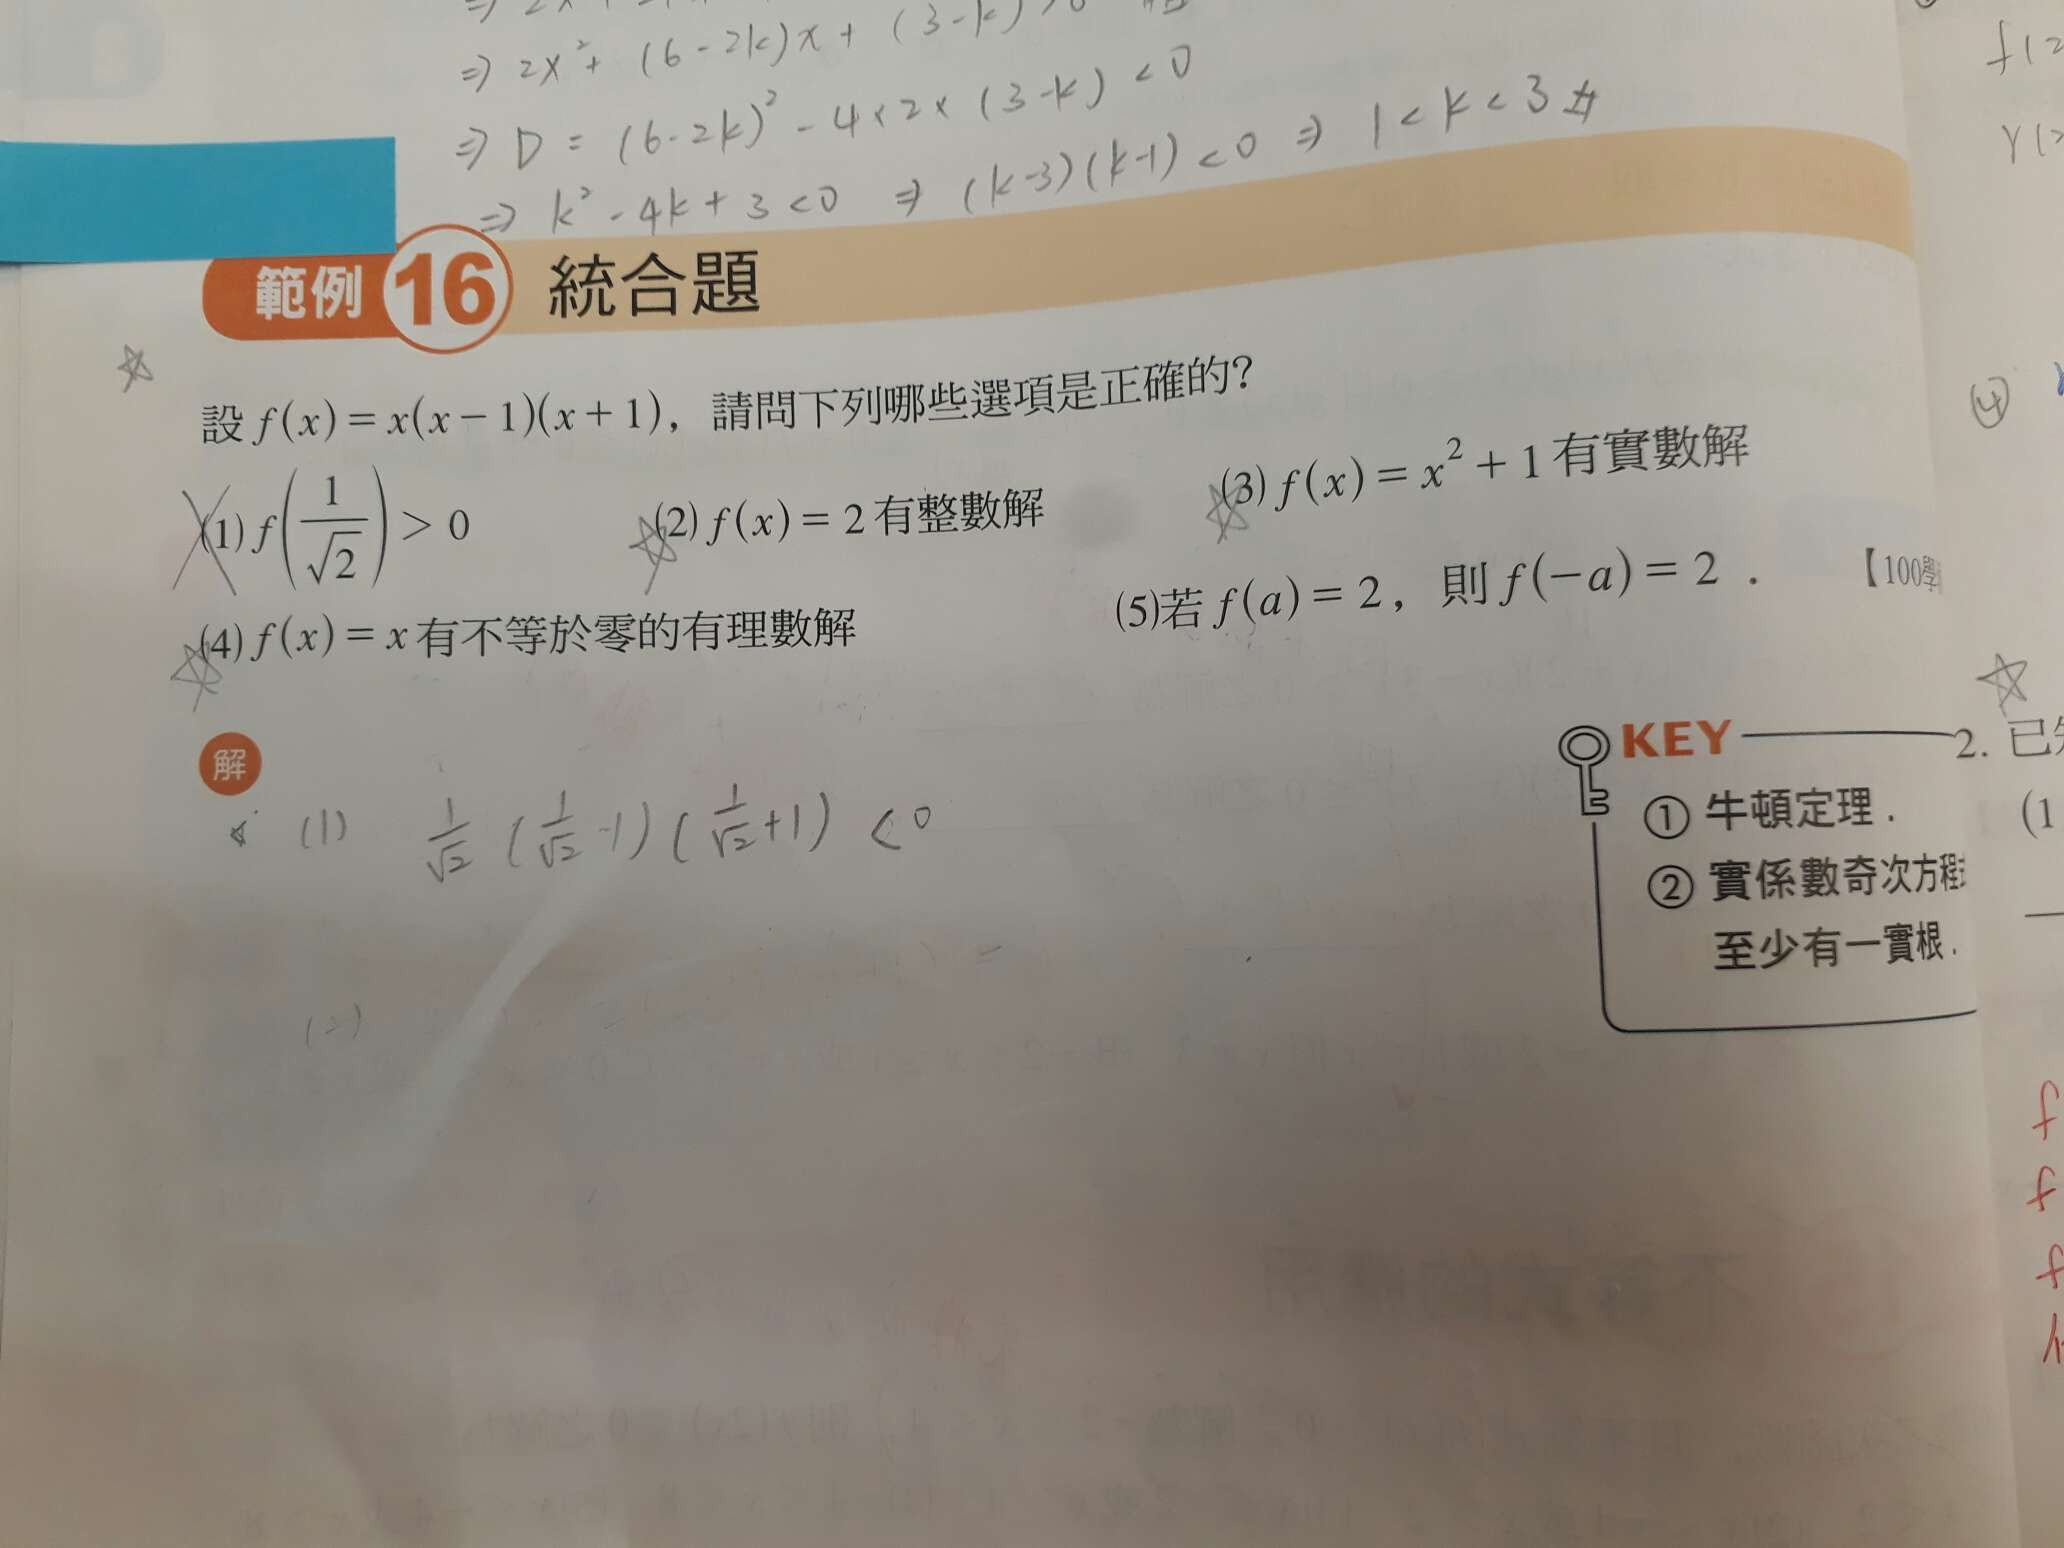 ⇒ 2x² + (6-2k)x + (3-k) >0
⇒ D = (6-2k)² - 4×2×(3-k) < 0
⇒ k² - 4k + 3 < 0 ⇒ (k-3)(k-1) < 0 ⇒ 1 < k < 3 #
範例 16 統合題
設 f(x) = x(x − 1)(x + 1)，請問下列哪些選項是正確的？
(1) f(1/√2) > 0 (2) f(x) = 2 有整數解 (3) f(x) = x² + 1 有實數解
(4) f(x) = x 有不等於零的有理數解 (5)若 f(a) = 2，則 f(−a) = 2．【100學
解
(1) 1/√2 (1/√2 -1)(1/√2 +1) < 0
(2)
KEY
① 牛頓定理．
② 實係數奇次方程
至少有一實根．
④
2. 已
(1
f
f
f